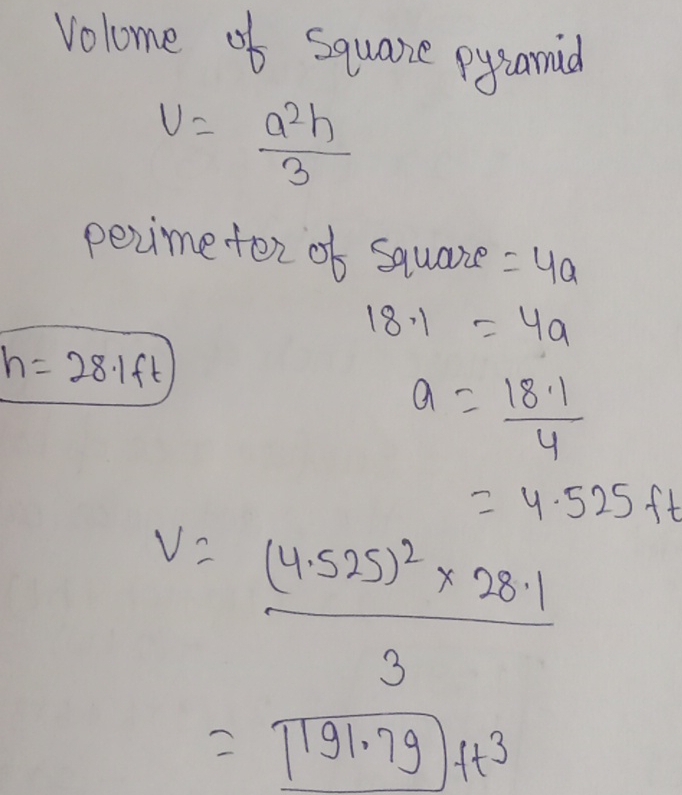 Volume of Square pyramid
V = a²h / 3
perimeter of Square = 4a
18.1 = 4a
h = 28.1ft
a = 18.1 / 4
= 4.525 ft
V = (4.525)² × 28.1 / 3
= 191.79 ft³